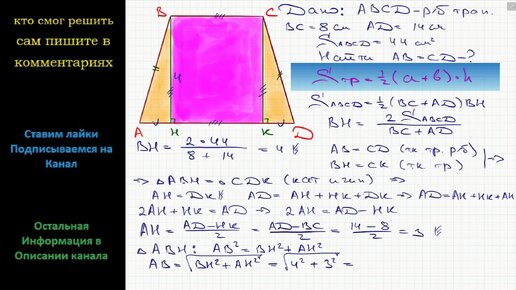 кто смог решить
сам пишите в
комментариях
Ставим лайки
Подписываемся на
Канал
Остальная
Информация в
Описании канала
B C
4
A H K D
Дано: ABCD – р/б трап.
BC = 8 см AD = 14 см
S_ABCD = 44 см²
Найти AB = CD – ?
S_тр = ½(a + b)·h
S_ABCD = ½(BC + AD)BH
BH = 2 S_ABCD / (BC + AD)
BH = 2·44 / (8 + 14) = 4
AB = CD (тк тр. р/б)
BH = CK (тк тр)
⇒ △ABH = △CDK (кат и гип) ⇒
AH = DK AD = AH + HK + DK ⇒ AD = AH + HK + AH
2AH + HK = AD ⇒ 2AH = AD – HK
AH = (AD – HK)/2 = (AD – BC)/2 = (14 – 8)/2 = 3
△ABH: AB² = BH² + AH²
AB = √(BH² + AH²) = √(4² + 3²) =